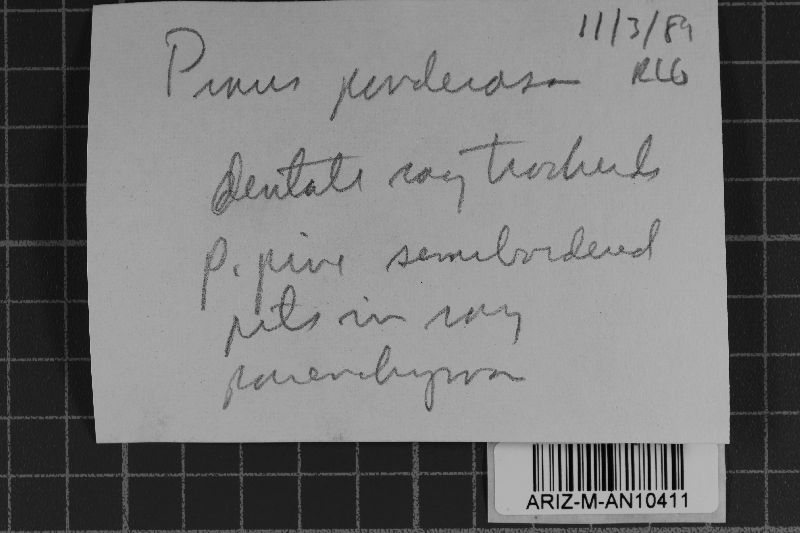 11/3/89
Pinus ponderosa RLG
Dentate ray tracheids
P. pine semibordered
pits in ray
parenchyma
ARIZ-M-AN10411